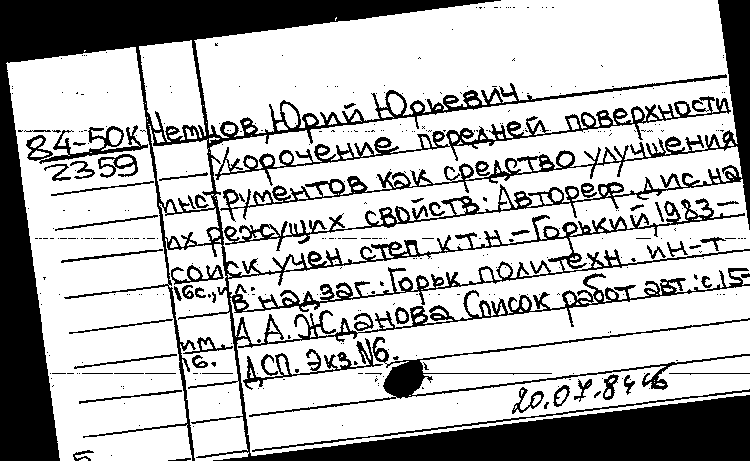 84-50К Немцов, Юрий Юрьевич.
2359 Укорочение передней поверхности
инструментов как средство улучшения
их режущих свойств: Автореф. дис. на
соиск. учен. степ. к.т.н. - Горький, 1983. -
16с., ил.
В надзаг.: Горьк. политехн. ин-т
им. А.А. Жданова. Список работ авт.: с. 15-
16.
ДСП. Экз. N6.
20.07.84